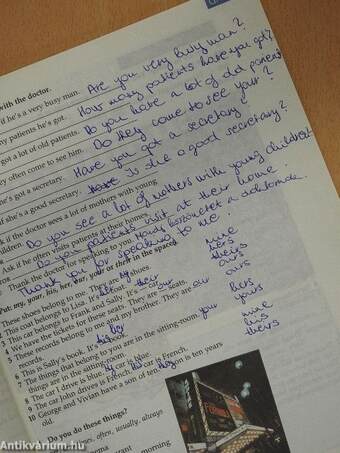 with the doctor.
if he's a very busy man. Are you very busy man?
ny patients he's got. How many patients have you got?
got a lot of old patients. Do you have a lot of old patient
ey often come to see him. Do they come to see your?
he's got a secretary. Have you got a secretary?
d she's a good secretary. Is she a good secretary?
sk if the doctor sees a lot of mothers with young
children. Do you see a lot of mothers with young children?
Ask if he often visits patients at their homes.
Do you patients visit at their home.
Thank the doctor for speaking to you.
Thank you for speaking to me.
Put: my, your, his, her, our, your or their in the spaces.
These shoes belong to me. They are my shoes. mine
This coat belongs to Liz. It's coat. hers
This car belongs to Frank and Sally. It's car. theirs
We have the tickets for these seats. They are our seats. ours
These records belong to me and my brother. They are our
records. ours
This is Sally's book. It's her book. hers
The things that belong to you are in the sitting-room. your
things are in the sitting-room. yours
8 The car I drive is blue. my car is blue. mine
9 The car John drives is French. his car is French. his
10 George and Vivian have a son of ten. son is ten years
old. theirs
Do you do these things?
often, usually, always
morning
Antikvárium.hu